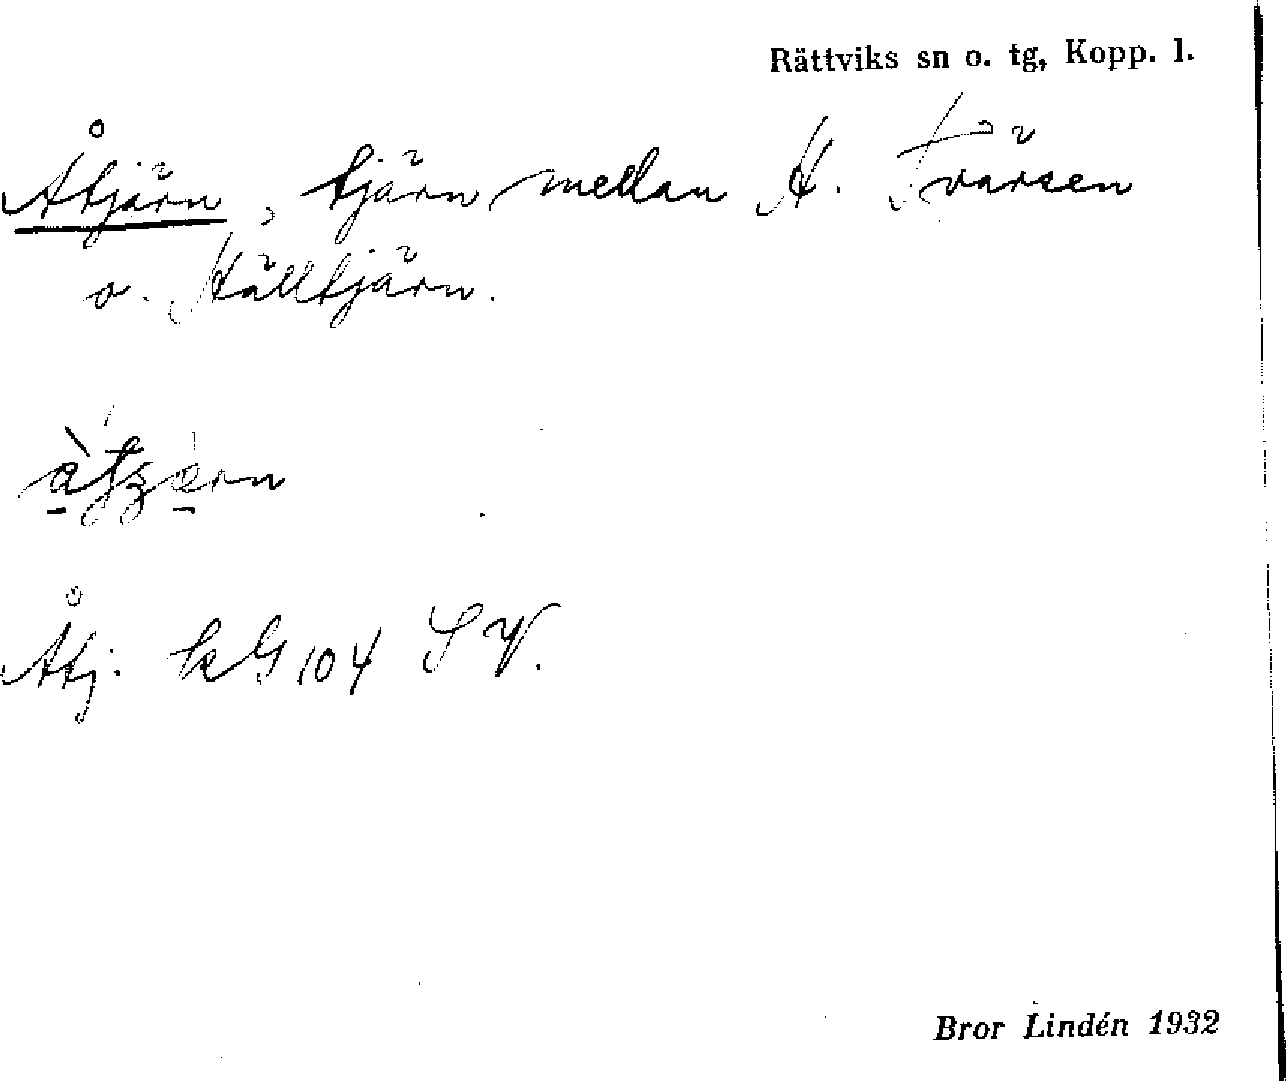 Rättviks sn o. tg, Kopp. l.
Åtjärn, tjärn mellan H. Tvärsen
o. Hälltjärn.
Åtj. kG 104 SV.
Bror Lindén 1932